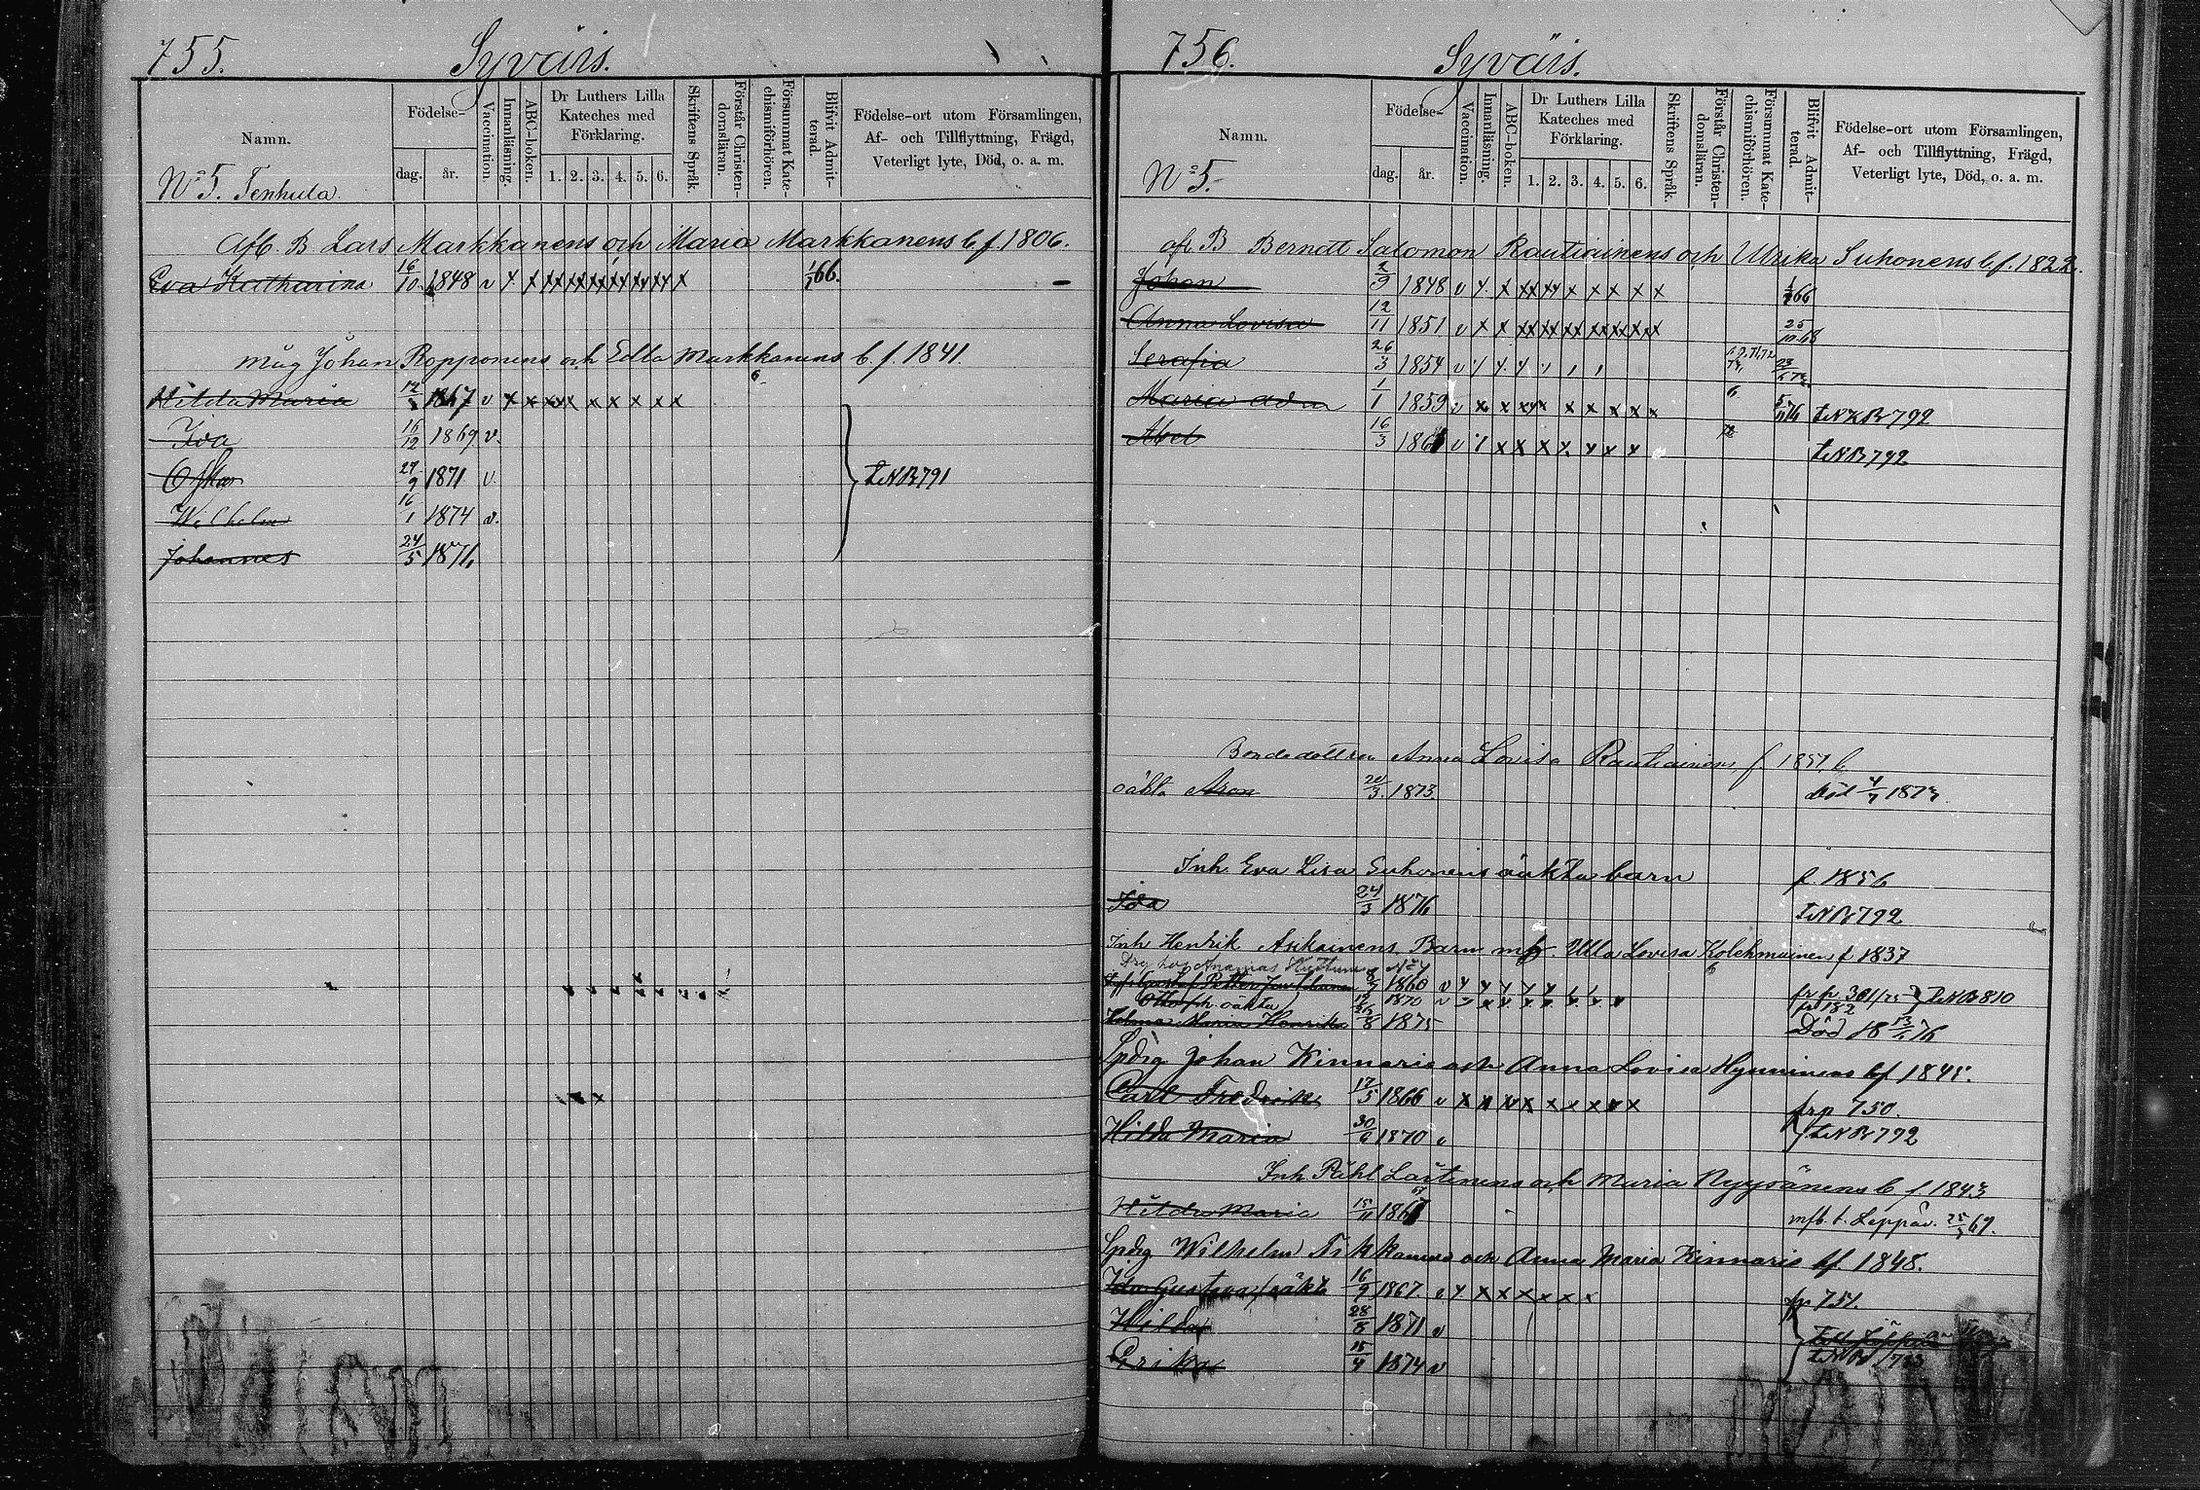 755.
Syväis.
Namn.
Födelse-
dag.
år.
Vaccination.
Innanläsning.
ABC-boken.
Dr Luthers Lilla
Kateches med
Förklaring.
1. 2. 3. 4. 5. 6.
Skriftens Språk.
Förstår Christen-
domsläran.
Försummat Kate-
chismiförhören.
Blifvit Admit-
terad.
Födelse-ort utom Församlingen,
Af- och Tillflyttning, Frägd,
Veterligt lyte, Död, o. a. m.
No 5. Tenhula.
Afl. B. Lars Markkanens och Maria Markkanens b. f. 1806.
Eva Katharina 16/10 1848 v x x xx xx xx xx xx xx x 1/7 66. –
måg Johan Ropponens och Edla Markkanens b. f. 1841.
Hilda Maria 1867 v x x x x x x x x x
Ida 16/12 1869 v.
Oskar 27/9 1871 v.
t.N.B. 791
Wilhelm 16/1 1874 v.
Johannes 24/5 1876
756.
Syväis.
Namn.
Födelse-
dag.
år.
Vaccination.
Innanläsning.
ABC-boken.
Dr Luthers Lilla
Kateches med
Förklaring.
1. 2. 3. 4. 5. 6.
Skriftens Språk.
Förstår Christen-
domsläran.
Försummat Kate-
chismiförhören.
Blifvit Admit-
terad.
Födelse-ort utom Församlingen,
Af- och Tillflyttning, Frägd,
Veterligt lyte, Död, o. a. m.
No 5.
afl. B Berndt Salomon Rautiainens och Ulrika Suhonens b. f. 1822.
Johan 2/9 1848 v x x xx xx x x x x x 66
Anna Lovisa 12/11 1851 v x x xx xx xx xx xx xx x 25/10 68
Serafia 26/3 1854 v
Maria 1/1 1859 v x x xx x x x x x 76 t.N.B. 792
Abel 16/3 v x x x x x x x t.N.B. 792
Bondedottren Anna Lovisa Rautiainens f 1851 b
oäkta Aron 20/3. 1873. Död 4/7 1873.
Inh. Eva Lisa Suhonens oäkta barn f. 1856
Ida 24/3 1876 t.N.B. 792
Inh Henrik Asikainens Barn m. Ulla Lovisa Kolehmainen f 1837
Gustaf Petter 1860 v x x x x x
Otto oäkta 1870 v x x x x x x x t.N.B. 810
Maria Henrika 1875 Död 76
Spdrg Johan Kinnaris och Anna Lovisa Hynninens bf 1845.
Carl Fredrik 17/5 1866 v x x x x x x x x x frp 750.
Hilda Maria 30/6 1870 v t.N.B. 792
Inh. Påhl Laitinens och Maria Nyyssönens b. f. 1843
Hilda Maria 15/11 mfb. t. Leppäv. 69.
Spdrg Wilhelm Tikkanens och Anna Maria Kinnaris bf. 1848.
Ida Gustava oäkt 16/9 1867. v x x x x x x x fp 751.
Hilda 28/8 1871 v
Erika 15/4 1874 v